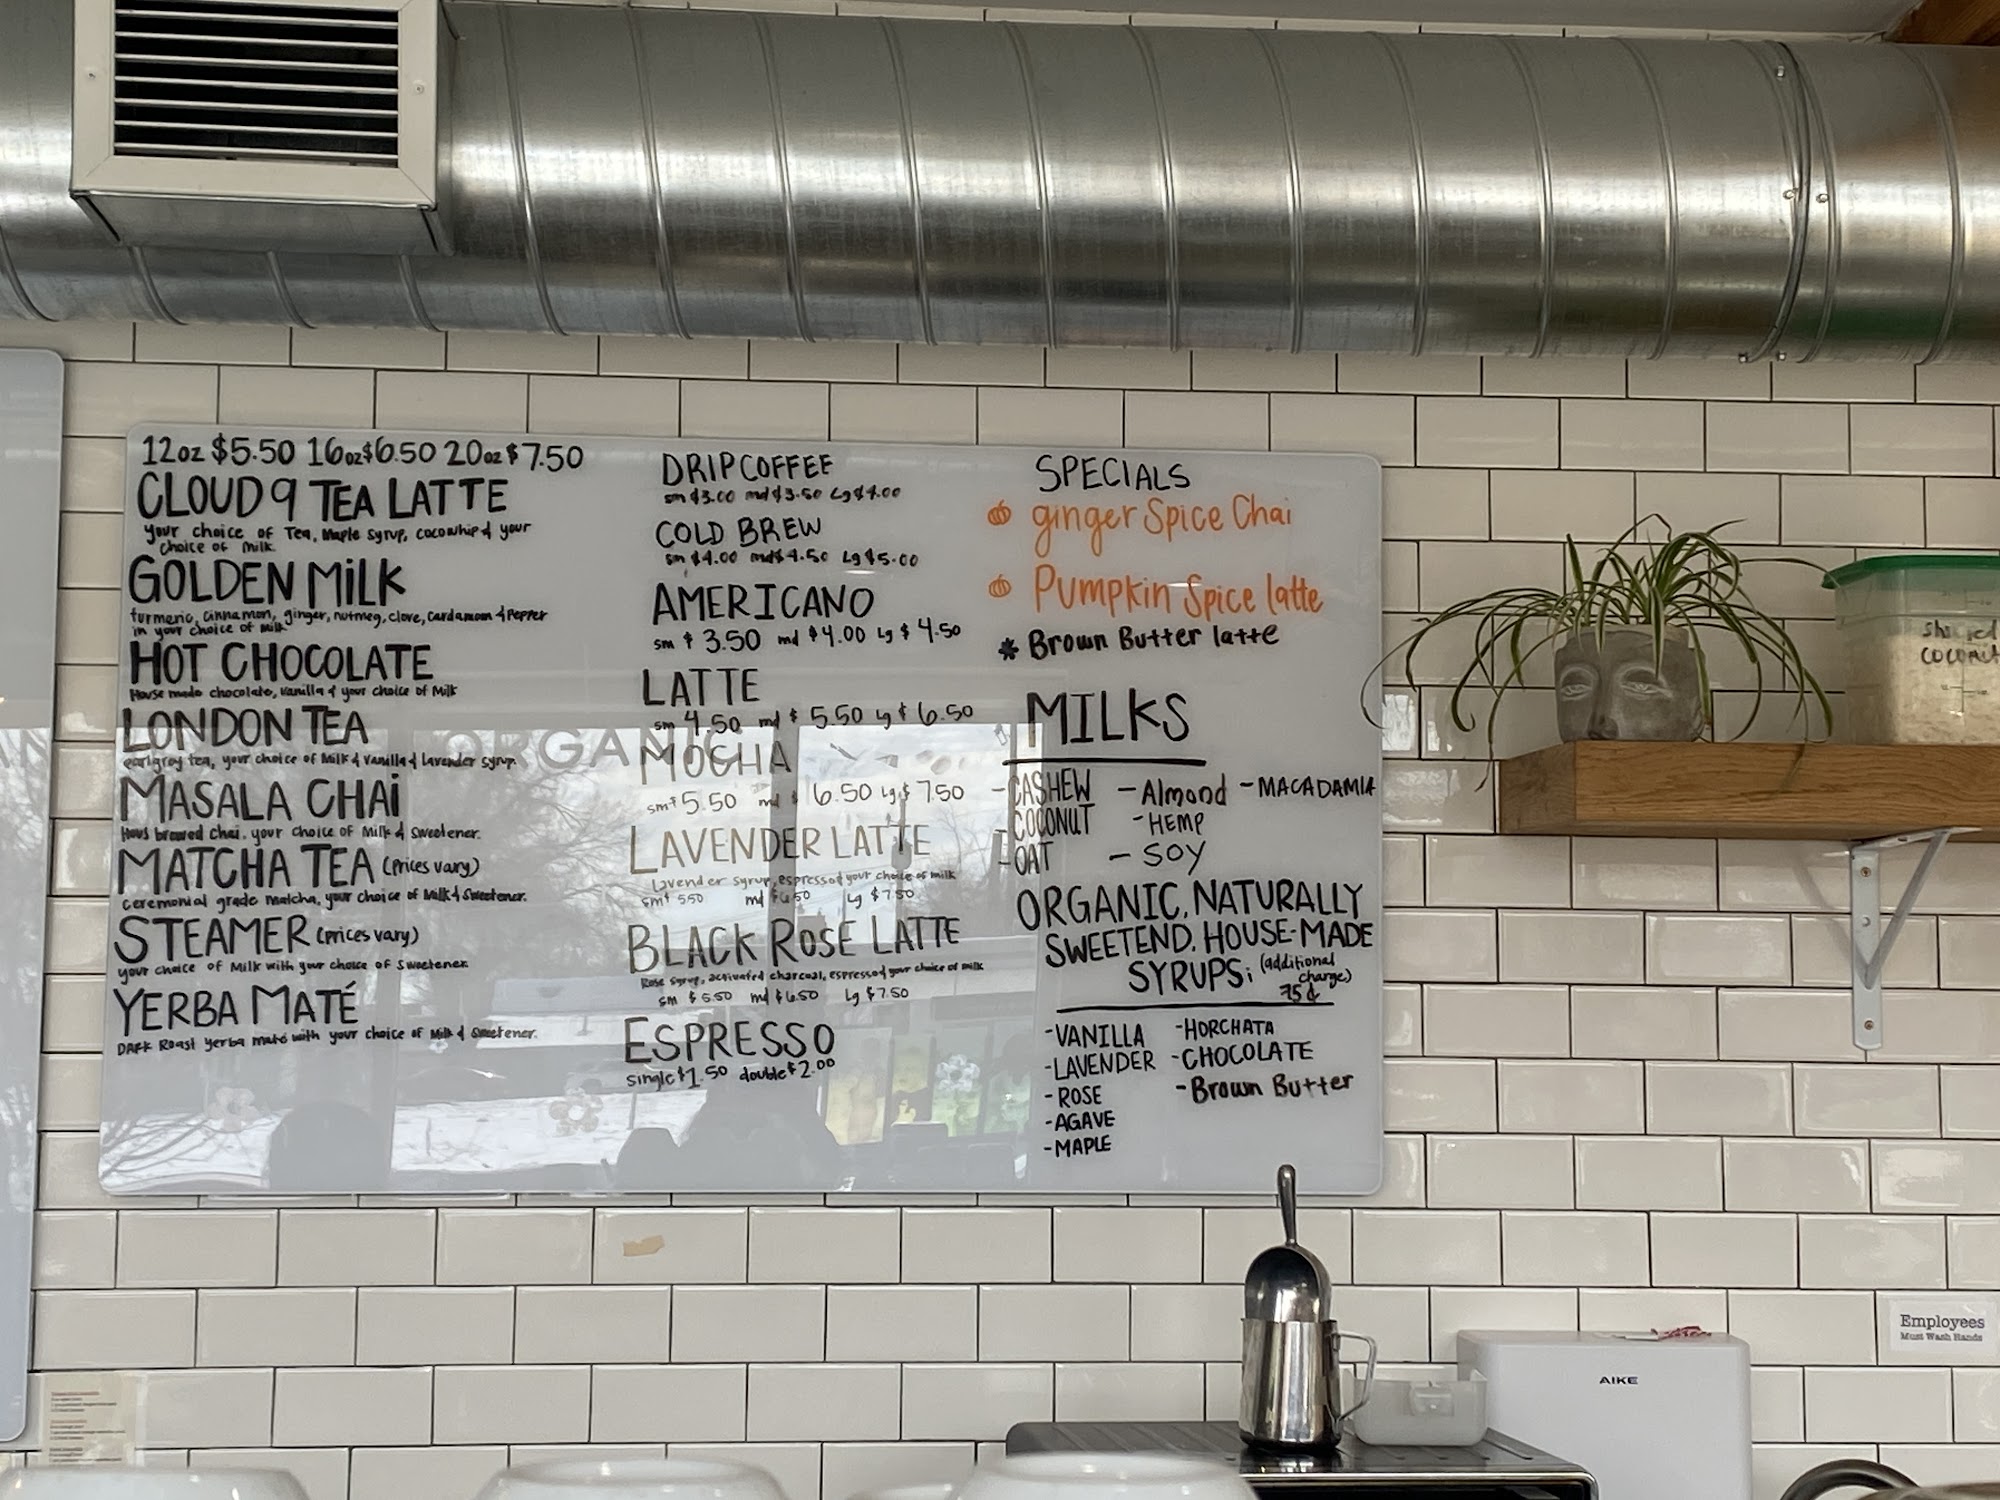 12oz $5.50 16oz $6.50 20oz $7.50
CLOUD 9 TEA LATTE
your choice of Tea, Maple Syrup, cocowhip & your
choice of Milk
GOLDEN MiLK
turmeric, cinnamon, ginger, nutmeg, clove, cardamom & Pepper
in your choice of Milk
HOT CHOCOLATE
House made chocolate, Vanilla & your choice of Milk
LONDON TEA
earlgrey tea, your choice of Milk & Vanilla & lavender syrup.
MASALA CHAi
Hous brewed chai, your choice of Milk & Sweetener.
MATCHA TEA (Prices vary)
ceremonial grade matcha, your choice of Milk & Sweetener.
STEAMER (prices vary)
your choice of Milk with your choice of Sweetener.
YERBA MATÉ
DARK Roast yerba maté with your choice of Milk & Sweetener.
DRIP COFFEE
sm $3.00 md $3.50 Lg $4.00
COLD BREW
sm $4.00 md $4.50 Lg $5.00
AMERICANO
sm $3.50 md $4.00 Lg $4.50
LATTE
sm 4.50 md $5.50 Lg $6.50
MOCHA
sm $5.50 md $6.50 Lg $7.50
LAVENDER LATTE
lavender syrup, espresso & your choice of milk
sm $5.50 md $6.50 Lg $7.50
BLACK ROSE LATTE
Rose Syrup, activated charcoal, espresso & your choice of milk
sm $5.50 md $6.50 Lg $7.50
ESPRESSO
single $1.50 double $2.00
SPECIALS
ginger Spice Chai
Pumpkin Spice latte
* Brown Butter latte
MILKS
-CASHEW -Almond -MACADAMIA
COCONUT -HEMP
-OAT -SOY
ORGANIC, NATURALLY
SWEETEND, HOUSE-MADE
SYRUPS: (additional
charge)
75¢
-VANILLA -HORCHATA
-LAVENDER -CHOCOLATE
-ROSE -Brown Butter
-AGAVE
-MAPLE
ORGANIC
COCONUT
Employees
Must Wash Hands
AIKE